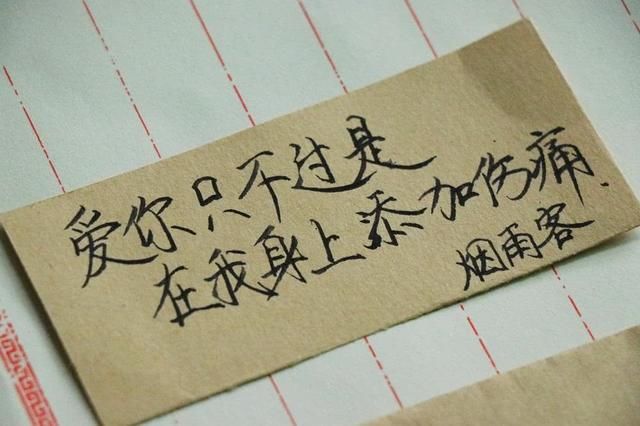 爱你只不过是
在我身上添加伤痛.
烟雨客